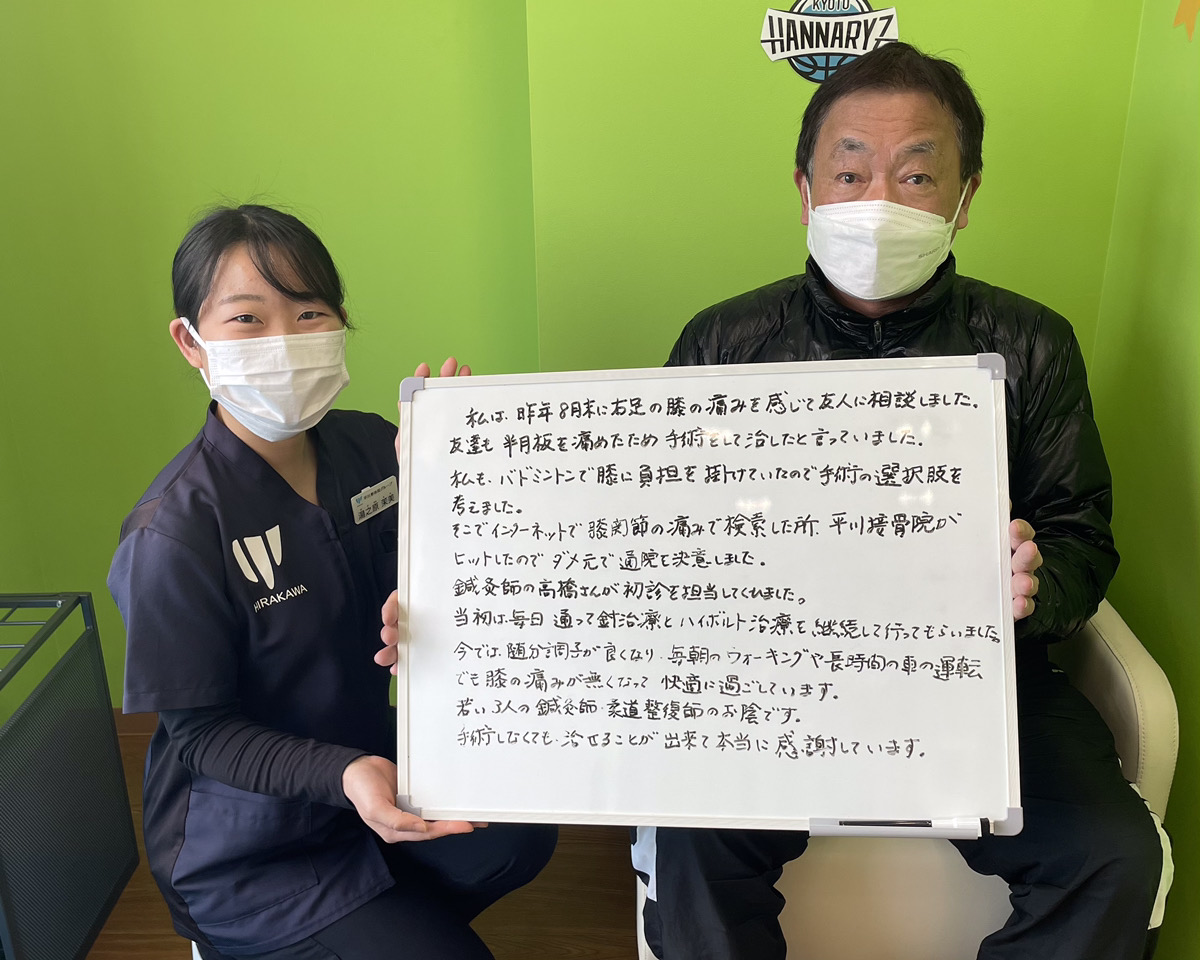 KYOTO
HANNARYZ
私は、昨年8月末に右足の膝の痛みを感じて友人に相談しました。
友達も半月板を痛めたため手術をして治したと言っていました。
私も、バドミントンで膝に負担を掛けていたので手術の選択肢を
考えました。
そこでインターネットで膝関節の痛みで検索した所、平川接骨院が
ヒットしたのでダメ元で通院を決意しました。
鍼灸師の高橋さんが初診を担当してくれました。
当初は毎日通って針治療とハイボルト治療を継続して行ってもらいました。
今では、随分調子が良くなり、毎朝のウォーキングや長時間の車の運転
でも膝の痛みが無くなって快適に過ごしています。
若い3人の鍼灸師・柔道整復師のお陰です。
手術しなくても、治せることが出来て本当に感謝しています。
HIRAKAWA